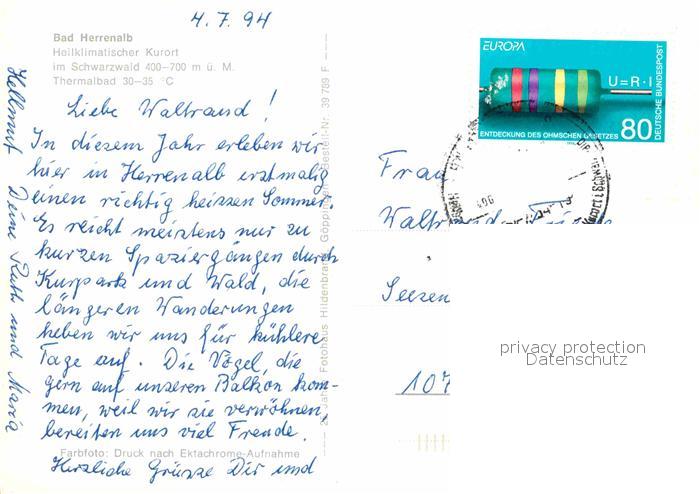 4.7.94
Bad Herrenalb
Heilklimatischer Kurort
im Schwarzwald 400-700 m ü. M.
Thermalbad 30-35 °C
Liebe Waltraud!
In diesem Jahr erleben wir
hier in Herrenalb erstmalig
einen richtig heissen Sommer.
Es reicht meistens nur zu
kurzen Spaziergängen durch
Kurpark und Wald, die
längeren Wanderungen
heben wir uns für kühlere
Tage auf. Die Vögel, die
gern auf unseren Balkon kom-
men, weil wir sie verwöhnen,
bereiten uns viel Freude.
Herzliche Grüsse Dir und
Hellmut Deine Ruth und Maria
Farbfoto: Druck nach Ektachrome-Aufnahme
Jahre Fotohaus Hildenbrand Göppingen Bestell-Nr. 39 789 F
EUROPA
U=R·I
ENTDECKUNG DES OHMSCHEN GESETZES
80
DEUTSCHE BUNDESPOST
Frau
Waltraud
Seesen
107
privacy protection
Datenschutz